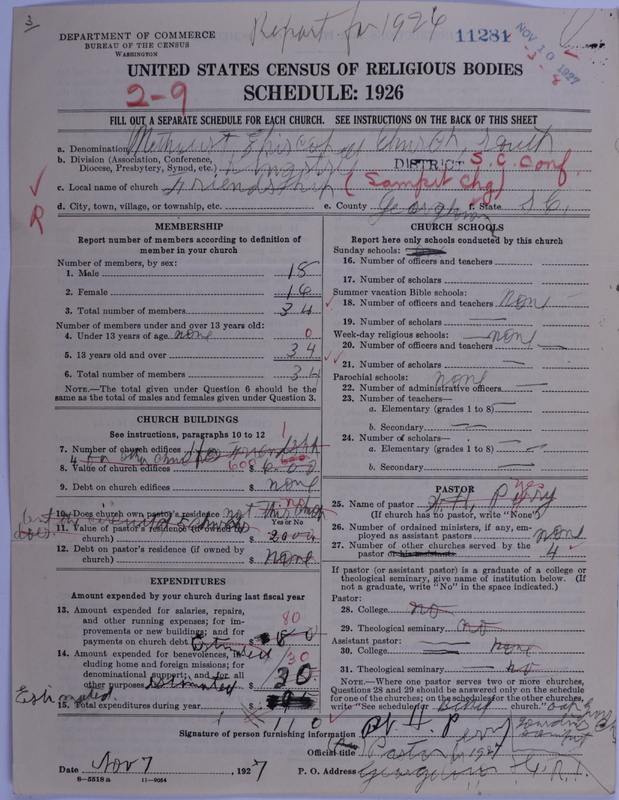 3
Report for 1926
DEPARTMENT OF COMMERCE
BUREAU OF THE CENSUS
WASHINGTON
11281
NOV 10 1927
UNITED STATES CENSUS OF RELIGIOUS BODIES
2-9
SCHEDULE: 1926
FILL OUT A SEPARATE SCHEDULE FOR EACH CHURCH. SEE INSTRUCTIONS ON THE BACK OF THIS SHEET
a. Denomination Methodist Episcopal Church, South
b. Division (Association, Conference, Diocese, Presbytery, Synod, etc.) Kingstree DISTRICT S.C. Conf.
c. Local name of church Friendship (Sampit Chg)
d. City, town, village, or township, etc. e. County Georgetown f. State S.C.
R
MEMBERSHIP
Report number of members according to definition of member in your church
Number of members, by sex:
1. Male 18
2. Female 16
3. Total number of members 34
Number of members under and over 13 years old:
4. Under 13 years of age none 0
5. 13 years old and over 34
6. Total number of members 34
NOTE.—The total given under Question 6 should be the same as the total of males and females given under Question 3.
CHURCH BUILDINGS
See instructions, paragraphs 10 to 12
7. Number of church edifices 1
8. Value of church edifices 600 $ 600
9. Debt on church edifices $ none
10. Does church own pastor's residence not this church no
Yes or No
11. Value of pastor's residence (if owned by church) $ 2000
12. Debt on pastor's residence (if owned by church) $ none
EXPENDITURES
Amount expended by your church during last fiscal year
13. Amount expended for salaries, repairs, and other running expenses; for improvements or new buildings; and for payments on church debt Estimated $ 80
14. Amount expended for benevolences, including home and foreign missions; for denominational support; and for all other purposes estimated 30 $ 30.
Estimated.
15. Total expenditures during year $
110
CHURCH SCHOOLS
Report here only schools conducted by this church
Sunday schools:
16. Number of officers and teachers
17. Number of scholars
Summer vacation Bible schools:
18. Number of officers and teachers none
19. Number of scholars —
Week-day religious schools: none
20. Number of officers and teachers —
21. Number of scholars —
Parochial schools: none
22. Number of administrative officers —
23. Number of teachers—
a. Elementary (grades 1 to 8) —
b. Secondary —
24. Number of scholars—
a. Elementary (grades 1 to 8) —
b. Secondary —
PASTOR
yes
25. Name of pastor H. H. Perry
(If church has no pastor, write "None")
26. Number of ordained ministers, if any, employed as assistant pastors none
27. Number of other churches served by the pastor or his assistants 4
If pastor (or assistant pastor) is a graduate of a college or theological seminary, give name of institution below. (If not a graduate, write "No" in the space indicated.)
Pastor:
28. College no
29. Theological seminary no
Assistant pastor:
30. College none
31. Theological seminary — no
NOTE.—Where one pastor serves two or more churches, Questions 28 and 29 should be answered only on the schedule for one of the churches; on the schedules for the other churches, write "See schedule for church."
Signature of person furnishing information H. H. Perry
Official title Pastor 1927
Date Nov 7, 1927 P. O. Address Georgetown
8—5518 a 11—9064